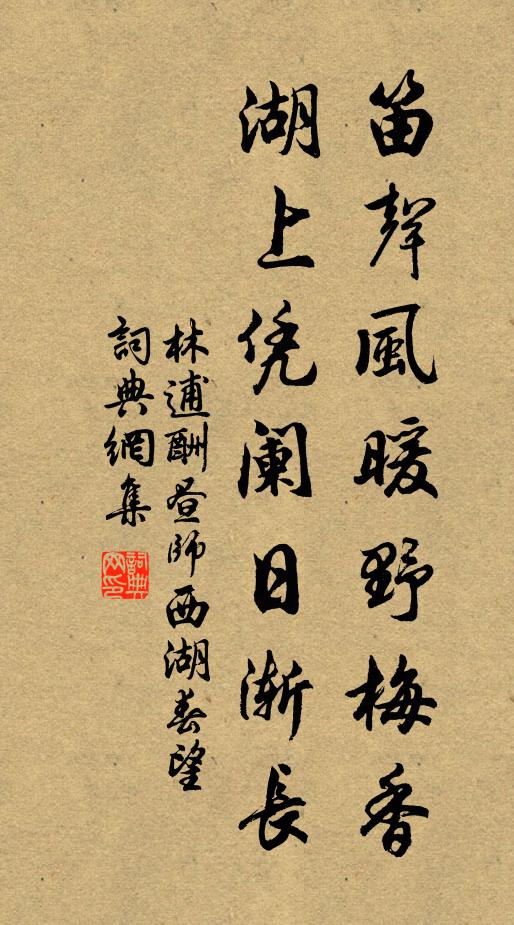 笛聲風暖野梅香
湖上凭阑日渐長
林逋酬昼師西湖春望
詞典網集
詞典网印